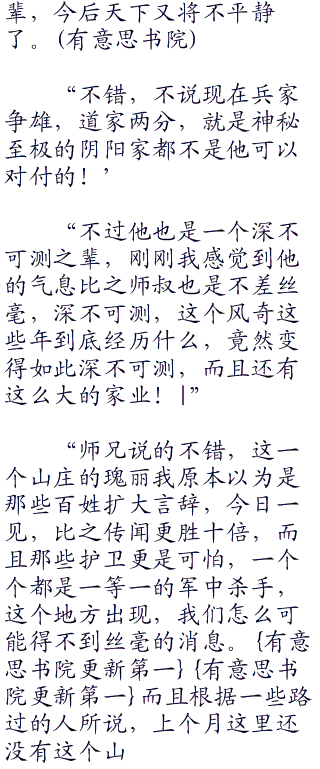 辈，今后天下又将不平静
了。(有意思书院)
“不错，不说现在兵家
争雄，道家两分，就是神秘
至极的阴阳家都不是他可以
对付的！’
“不过他也是一个深不
可测之辈，刚刚我感觉到他
的气息比之师叔也是不差丝
毫，深不可测，这个风奇这
些年到底经历什么，竟然变
得如此深不可测，而且还有
这么大的家业！|”
“师兄说的不错，这一
个山庄的瑰丽我原本以为是
那些百姓扩大言辞，今日一
见，比之传闻更胜十倍，而
且那些护卫更是可怕，一个
个都是一等一的军中杀手，
这个地方出现，我们怎么可
能得不到丝毫的消息。{有意
思书院更新第一}{有意思书
院更新第一}而且根据一些路
过的人所说，上个月这里还
没有这个山